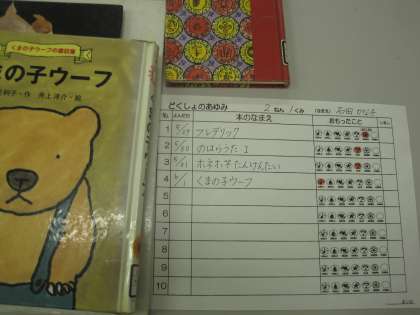 くまの子ウーフの童話集
まの子ウーフ
利子・作 井上洋介・絵
どくしょのあゆみ 2 ねん 1 くみ
No. 本のなまえ おもったこと
1 5/27 フレデリック
2 5/30 のはらうた I
3 5/31 ホネホネたんけんたい
4 6/1 くまの子ウーフ
5
6
7
8
9
10